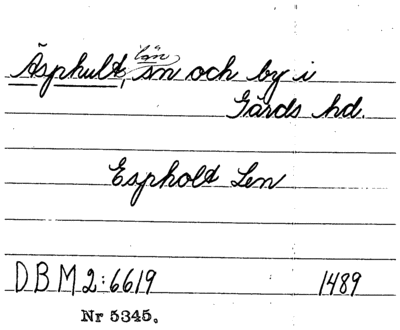 län
Äsphult, sn och by i
Gärds hd.
Espholt Len
DBM 2:6619 1489
Nr 5345.